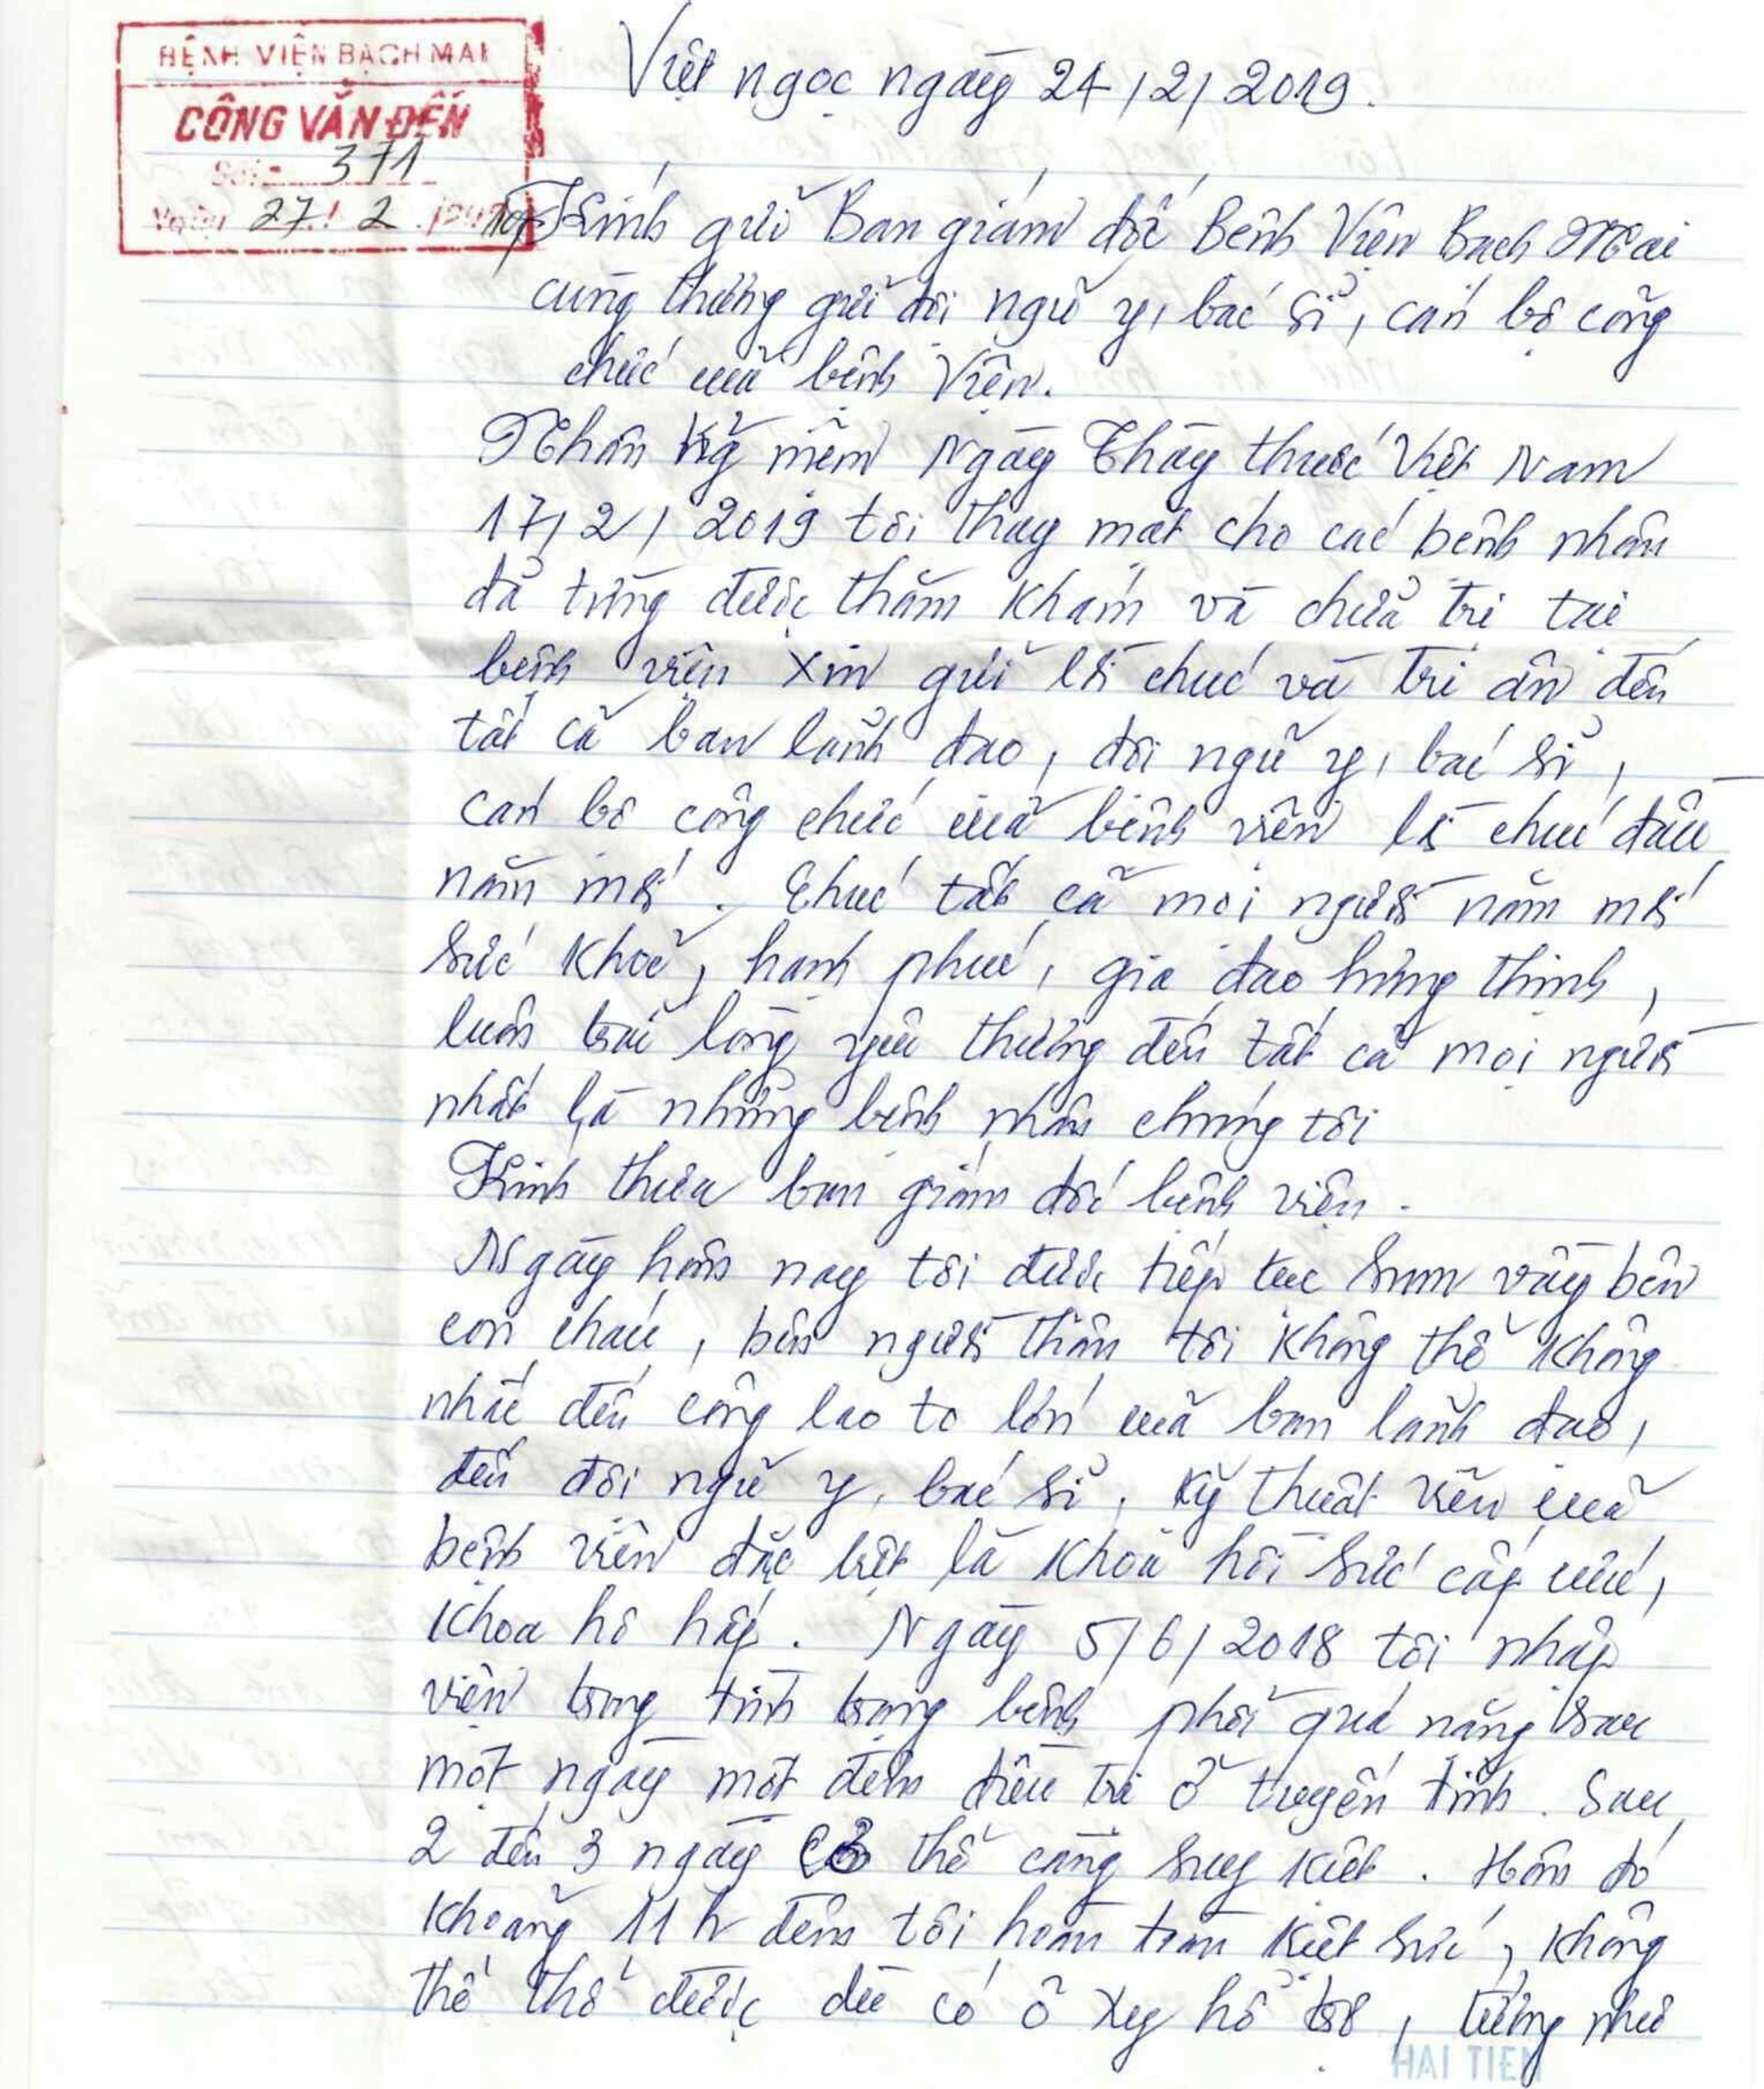 BỆNH VIỆN BẠCH MAI
CÔNG VĂN ĐẾN
Số: 371
Ngày 27/2
Việt Ngọc ngày 24/2/2019.
Kính gửi Ban giám đốc Bệnh Viện Bạch Mai
cùng thương gửi đội ngũ y, bác sĩ, cán bộ công
chức của bệnh Viện.
Nhân kỷ niệm Ngày Thầy thuốc Việt Nam
17/2/2019 tôi thay mặt cho các bệnh nhân
đã từng được thăm khám và chữa trị tại
bệnh viện xin gửi lời chúc và tri ân đến
tất cả ban lãnh đạo, đội ngũ y, bác sĩ,
cán bộ công chức của bệnh viện lời chúc đầu
năm mới. Chúc tất cả mọi người năm mới
sức khoẻ, hạnh phúc, gia đạo hưng thịnh,
luôn trải lòng yêu thương đến tất cả mọi người
nhất là những bệnh nhân chúng tôi
Kính thưa ban giám đốc bệnh viện.
Ngày hôm nay tôi được tiếp tục sum vầy bên
con cháu, bên người thân tôi không thể không
nhắc đến công lao to lớn của ban lãnh đạo,
đến đội ngũ y, bác sĩ, kỹ thuật viên của
bệnh viện đặc biệt là khoa hồi sức cấp cứu,
khoa hô hấp. Ngày 5/6/2018 tôi nhập
viện trong tình trạng bệnh phổi quá nặng sau
một ngày một đêm điều trị ở tuyến tỉnh. Sau
2 đến 3 ngày cơ thể càng suy kiệt. Hôm đó
khoảng 11h đêm tôi hoàn toàn kiệt sức, không
thể thở được dù có ô xy hỗ trợ, tưởng như
HAI TIEN